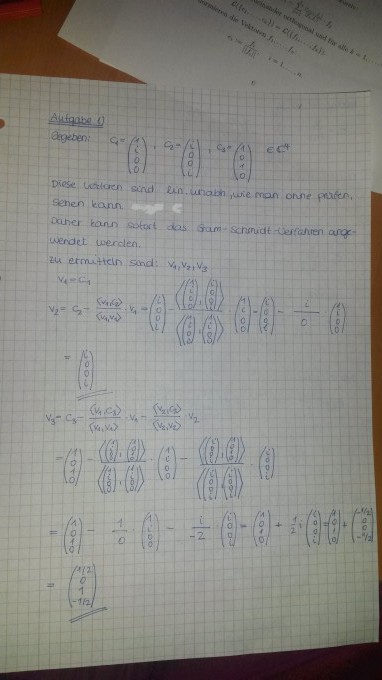 Aufgabe 1)
Gegeben: C₁ = (1 i 0 0), C₂ = (i 0 0 i), C₃ = (1 0 1 0) ∈ ℂ⁴
Diese Vektoren sind lin. unabh., wie man ohne prüfen,
sehen kann
Daher kann sofort das Gram-Schmidt-Verfahren ange-
wendet werden.
Zu ermitteln sind: V₁, V₂, V₃
V₁ = C₁
V₂ = C₂ - ⟨V₁,C₂⟩/⟨V₁,V₁⟩ · V₁ = (i 0 0 i) - ⟨(1 i 0 0), (i 0 0 i)⟩/⟨(1 i 0 0), (1 i 0 0)⟩ · (1 i 0 0) = (i 0 0 i) - i/0 (1 i 0 0)
= (i 0 0 i)
V₃ = C₃ - ⟨V₁,C₃⟩/⟨V₁,V₁⟩ · V₁ - ⟨V₂,C₃⟩/⟨V₂,V₂⟩ · V₂
= (1 0 1 0) - ⟨(1 i 0 0), (1 0 1 0)⟩/⟨(1 i 0 0), (1 i 0 0)⟩ · (1 i 0 0) - ⟨(i 0 0 i), (1 0 1 0)⟩/⟨(i 0 0 i), (i 0 0 i)⟩ · (i 0 0 i)
= (1 0 1 0) - 1/0 (1 i 0 0) - i/-2 · (i 0 0 i) = (1 0 1 0) + 1/2 i (i 0 0 i) = (1 0 1 0) + (-1/2 0 0 -1/2)
= (1/2 0 1 -1/2)